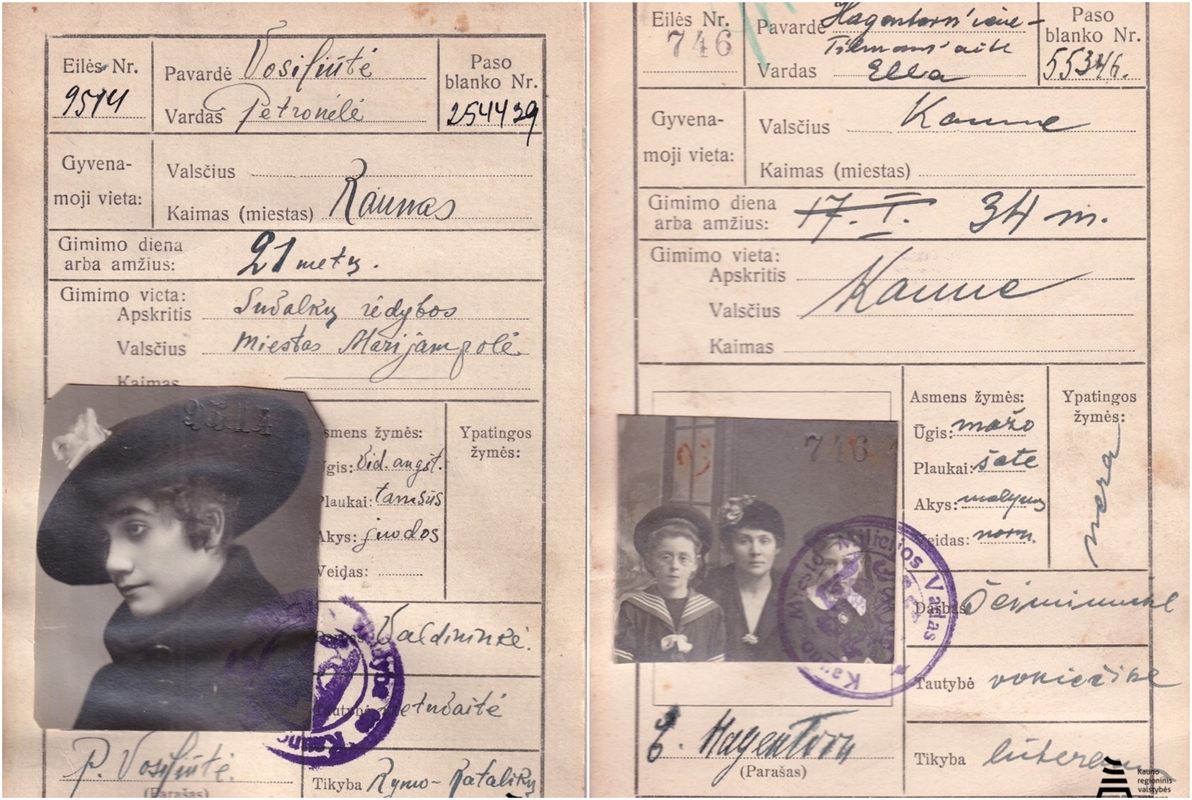 Eilės Nr.
9514
Pavardė Vosiliūtė
Vardas Petronėlė
Paso
blanko Nr.
254429
Gyvena-
moji vieta:
Valsčius
Kaimas (miestas) Kaunas
Gimimo diena
arba amžius:
21 metų.
Gimimo vieta:
Apskritis Suvalkų rėdybos
Valsčius Miestas Marijampolė
Kaimas
9514
smens žymės:
gis: vid. augšt.
Plaukai: tamsūs
Akys: juodos
Veidas:
Ypatingos
žymės:
Valdininkė.
Lietuvaitė
P. Vosiliūtė.
(Parašas)
Tikyba Rymo-Katalikų
Eilės Nr.
746
Pavardė Hagentorn'ienė-
Tilmans'aitė
Vardas Ella
Paso
blanko Nr.
55346.
Gyvena-
moji vieta:
Valsčius Kaune
Kaimas (miestas)
Gimimo diena
arba amžius:
17. I. 34 m.
Gimimo vieta:
Apskritis
Valsčius Kaune
Kaimas
746
Asmens žymės:
Ūgis: mažo
Plaukai: šatė
Akys: mėlynos
Veidas: norm.
Ypatingos
žymės:
nėra
Kauno Miesto Milicijos Vadas
Darbas Šeimininkė
Tautybė vokietikė
E. Hagentorn
(Parašas)
Tikyba
Kauno
regioninis
valstybės